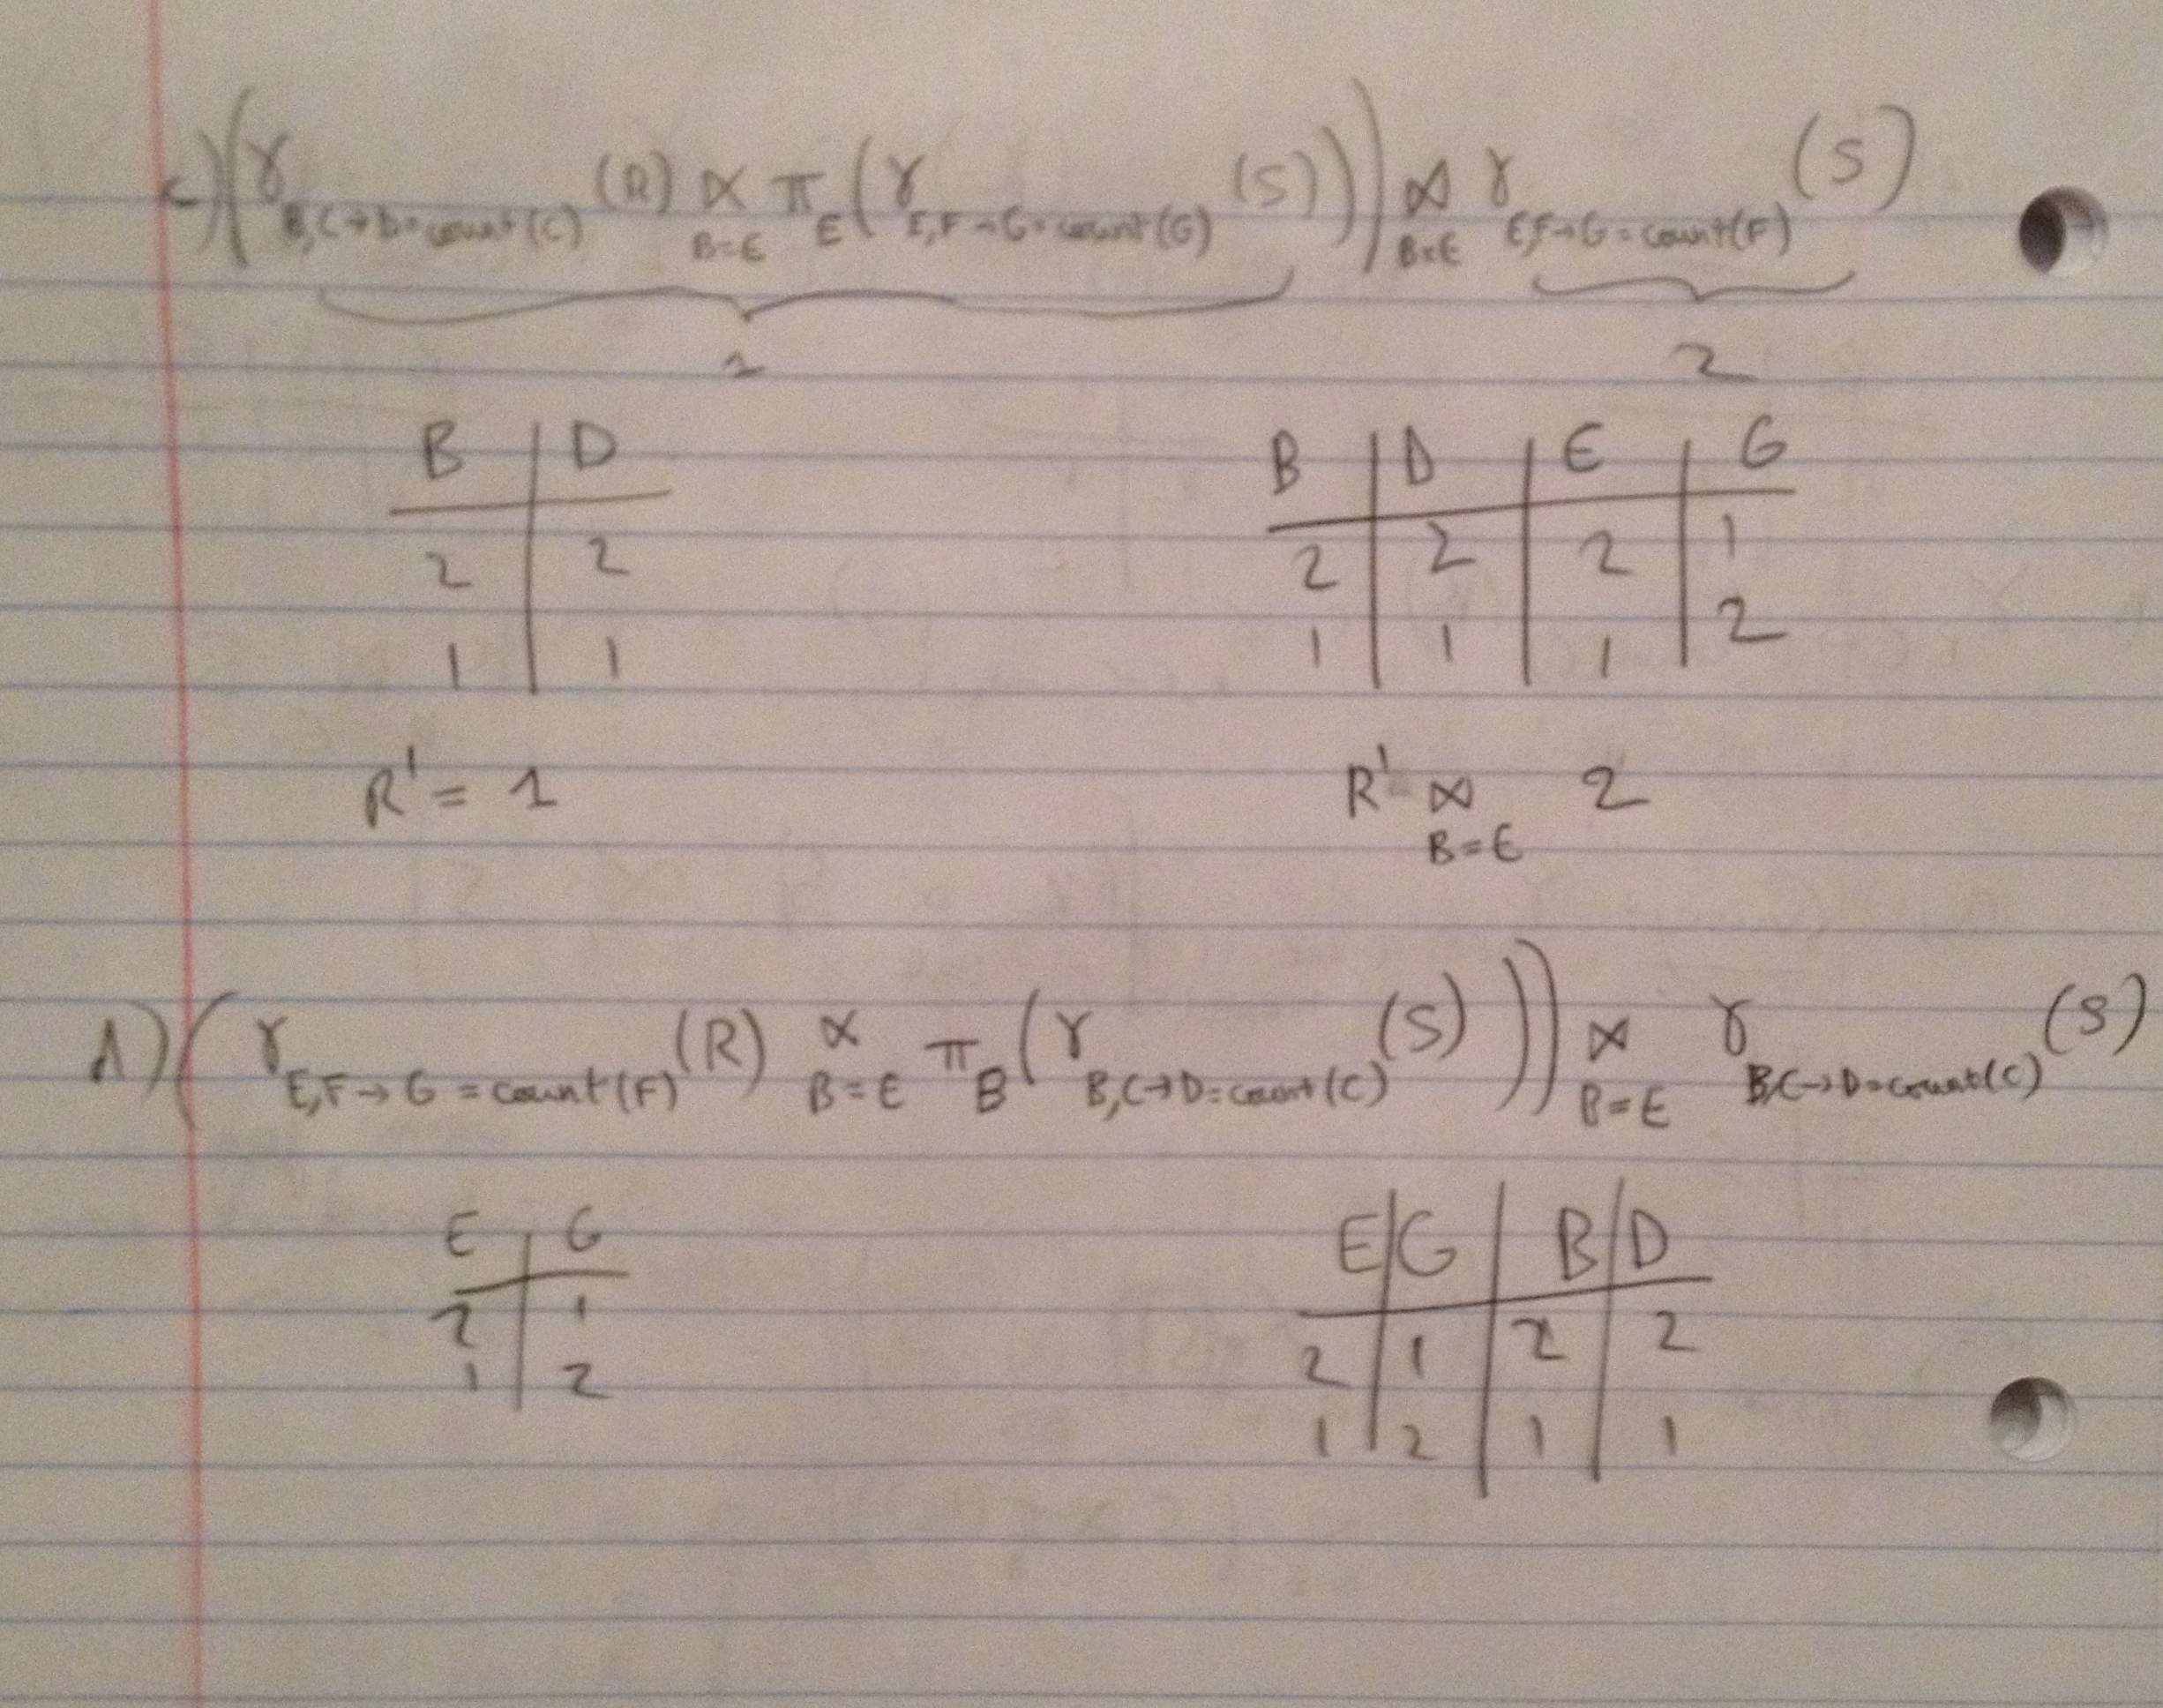 c) (γ B,C→D=count(C) (R) ∝ B=E π E (γ E,F→G=count(G) (S))) ⋈ B=E γ E,F→G=count(F) (S)
1 2
B D B D E G
2 2 2 2 2 1
1 1 1 1 1 2
R' = 1 R' ⋈ B=E 2
d) (γ E,F→G=count(F) (R) ∝ B=E π B (γ B,C→D=count(C) (S))) ⋈ B=E γ B,C→D=count(C) (S)
E G E G B D
2 1 2 1 2 2
1 2 1 2 1 1